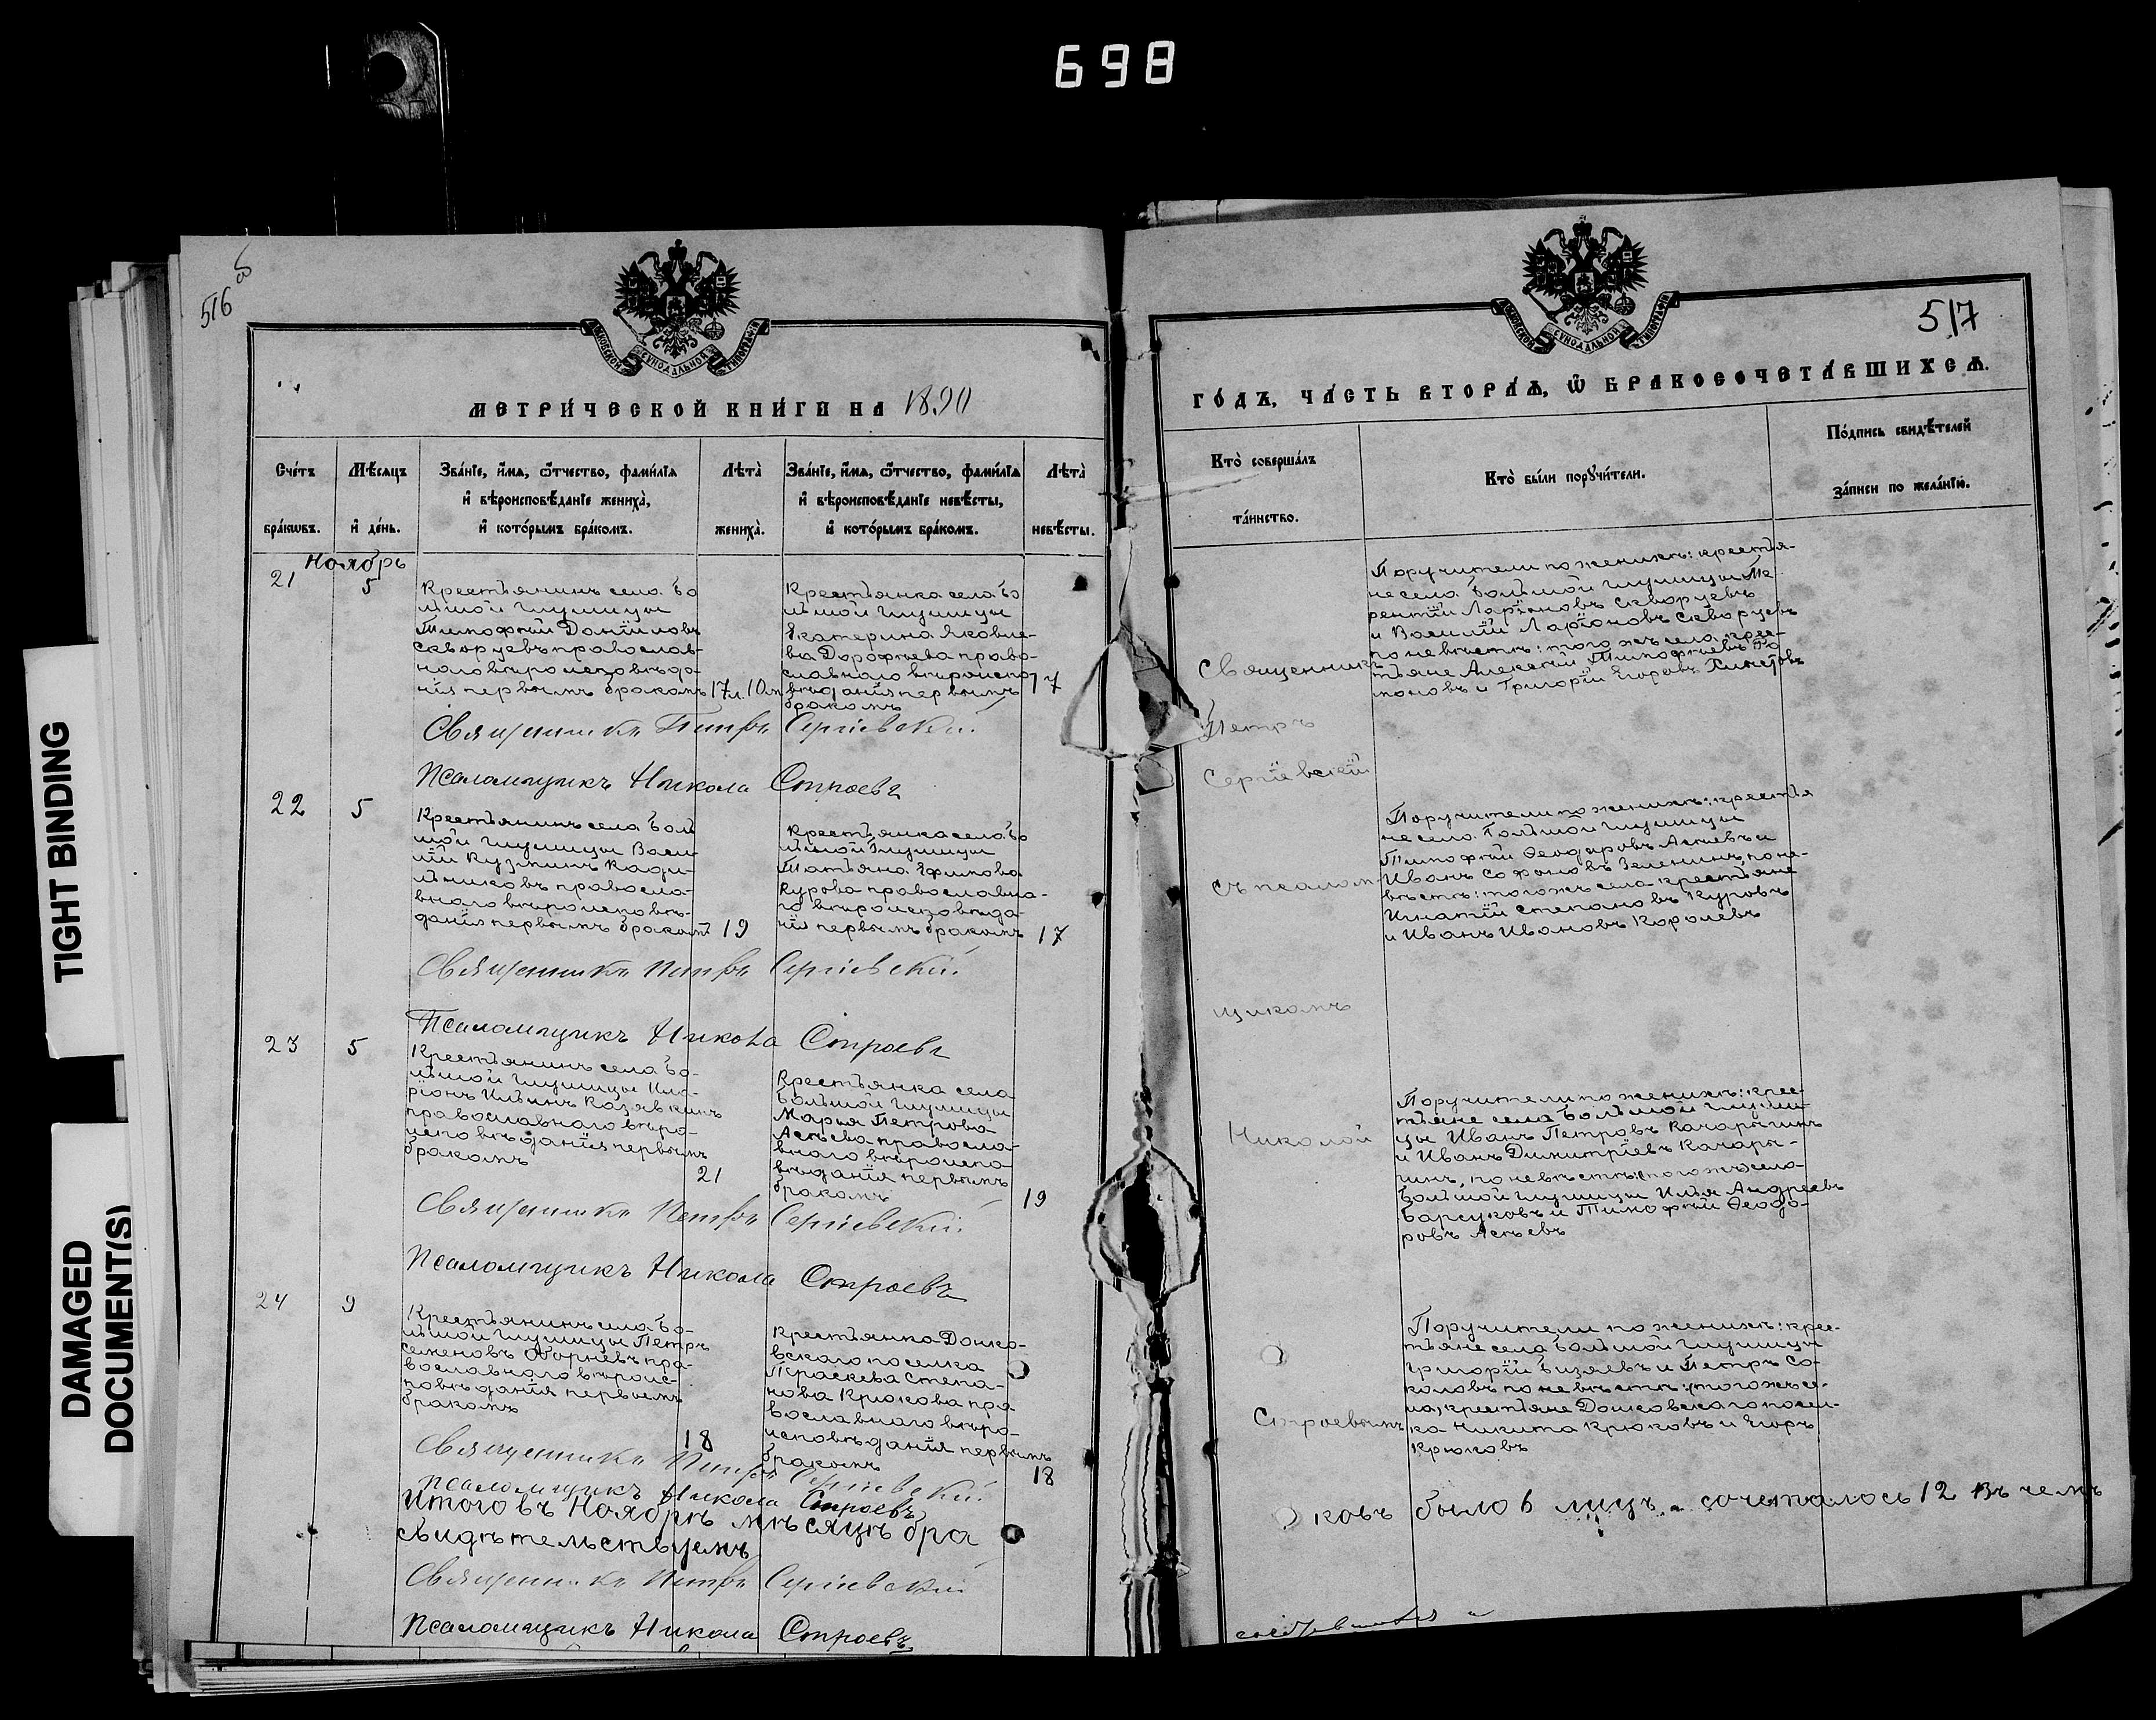 698
TIGHT BINDING
DAMAGED
DOCUMENT(S)
516 об
МОСКОВСКОЙ СѴНОДАЛЬНОЙ ТИПОГРАФІИ
МЕТРИ́ЧЕСКОЙ КНИ́ГИ НА 1890
Сче́тъ
бра́кѡвъ.
Мѣ́сяцъ
и҆ де́нь.
Зва́нїе, и҆́мя, ѻ҆́тчество, фами́лїя
и҆ вѣроисповѣ́данїе жениха̀,
и҆ кото́рымъ бра́комъ.
Лѣта̀
жениха̀.
Зва́нїе, и҆́мя, ѻ҆́тчество, фами́лїя
и҆ вѣроисповѣ́данїе невѣ́сты,
и҆ кото́рымъ бра́комъ.
Лѣта̀
невѣ́сты.
Ноябрь
21
5
Крестьянинъ села Бо
льшой Глушицы
Тимофѣй Данїиловъ
Скворцевъ православ-
наго вѣроисповѣда-
нія первымъ бракомъ
17 л. 10 м
Крестьянка села Бо
льшой Глушицы
Екатерина Яковле-
ва Дорофѣева право-
славнаго вѣроиспо
вѣданїя первымъ
бракомъ
17
Священникъ Петръ Сергіевскій
Псаломщикъ Никола Строевъ
22
5
Крестьянинъ села Боль
шой Глушицы Васи-
лїй Кузминъ Кади-
льниковъ правосла-
внаго вѣроисповѣ-
данїя первымъ бракомъ
19
Крестьянка села Бо
льшой Глушицы
Татьяна Ефимова
Курова православна-
го вѣроисповѣда-
нїя первымъ бракомъ
17
Священникъ Петръ Сергіевскій
Псаломщикъ Никола Строевъ
23
5
Крестьянинъ села Бо-
льшой Глушицы Ила-
рїонъ Ильинъ Козявкинъ
православнаго вѣро-
исповѣданїя первымъ
бракомъ
21
Крестьянка села
Большой Глушицы
Марья Петрова
Асѣева правосла-
внаго вѣроиспо-
вѣданїя первымъ
бракомъ
19
Священникъ Петръ Сергіевскій
Псаломщикъ Никола Строевъ
24
9
Крестьянинъ села Бо-
льшой Глушицы Петръ
Семеновъ пра-
вославнаго вѣроис-
повѣданїя первымъ
бракомъ
18
Крестьянка Донко-
вскаго поселка
Параскева Степа-
нова Крюкова пра
вославнаго вѣро-
исповѣданїя первымъ
бракомъ
18
Священникъ Петръ Сергіевскій
Псаломщикъ Никола Строевъ
Итого въ Ноябрѣ мѣсяцѣ бра
свидѣтельствуемъ
Священникъ Петръ Сергіевскій
Псаломщикъ Никола Строевъ
517
МОСКОВСКОЙ СѴНОДАЛЬНОЙ ТИПОГРАФІИ
ГО́ДЪ, ЧА́СТЬ ВТОРА́Я, Ѡ҆ БРАКОСОЧЕТА́ВШИХСЯ.
Кто̀ соверша́лъ
та́инство.
Кто̀ бы́ли порꙋчи́тели.
По́дпись свидѣ́телей
за́писи по жела́нїю.
Священникъ
Петръ
Сергїевскїй
съ псалом-
щикомъ
Николой
Строевымъ
Поручители по женихѣ: крестья-
не села Большой Глушицы Те
рентїй Ларїоновъ Скворцевъ
и Василїй Ларїоновъ Скворцевъ
по невѣстѣ: того жъ села крес-
тьяне Алексѣй Тимофѣевъ
и Григорїй Егоровъ
Поручители по женихѣ: крестья
не села Большой Глушицы
Тимофѣй Ѳеодоровъ Асѣевъ и
Иванъ Софоновъ Зеленинъ, по не-
вѣстѣ: того жъ села крестьяне
Игнатїй Степановъ Куровъ
и Иванъ Ивановъ Королевъ
Поручители по женихѣ: крес-
тьяне села Большой Глуши-
цы Иванъ Петровъ Качарыгинъ
и Иванъ Димитрїевъ Качары-
гинъ, по невѣстѣ: того жъ села
Большой Глушицы Илья Андреевъ
Барсуковъ и Тимофѣй Ѳеодо-
ровъ Асѣевъ
Поручители по женихѣ: крес-
тьяне села Большой Глушицы
Григорїй Бизяевъ и Петръ Со-
коловъ по невѣстѣ: того жъ се-
ла, крестьяне Донковскаго посел-
ка Никита Крюковъ и Егоръ
Крюковъ
ковъ было 6 лицъ сочеталось 12 въ чемъ